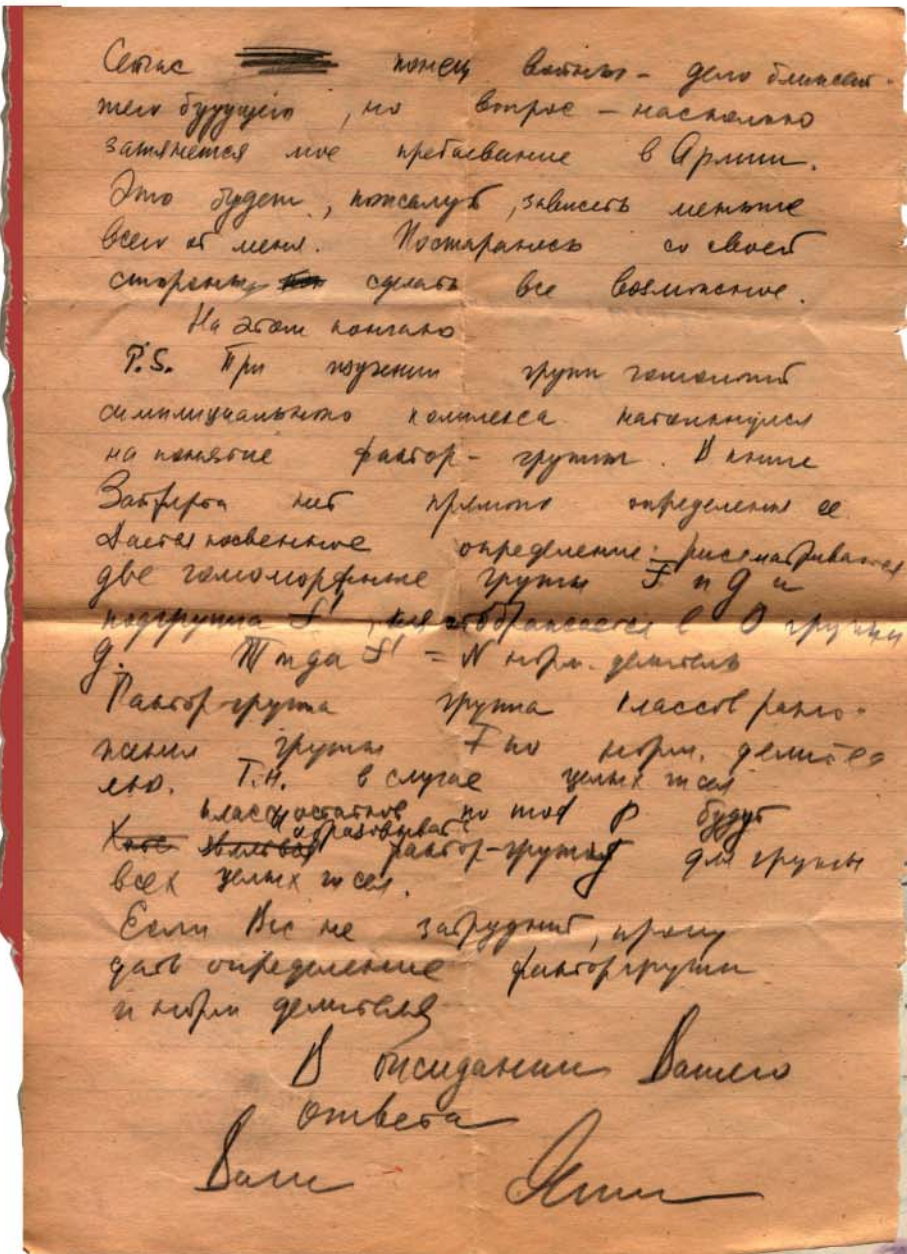 Сейчас конец войны - дело ближай-
шего будущего, но вопрос - насколько
затянется мое пребывание в Армии.
Это будет, пожалуй, зависеть меньше
всего от меня. Постараюсь со своей
стороны сделать все возможное.
На этом кончаю
P.S. При изучении групп гомологий
симплициального комплекса натолкнулся
на понятие фактор-группы. В книге
Зайферта нет прямого определения ее.
Дается косвенное определение: рассматриваются
две гомоморфные группы F и g и
подгруппа F', отображается в 0 группы
g. Тогда F' = N норм. делитель
Фактор-группа группа классов разло-
жения группы F по норм. делите
лю. Т.н. в случае целых чисел
классы остатков по mod p будут
образовывать фактор-группу для группы
всех целых чисел.
Если Вас не затруднит, прошу
дать определение факторгруппы
и норм делителя
В ожидании Вашего
ответа
Ваш